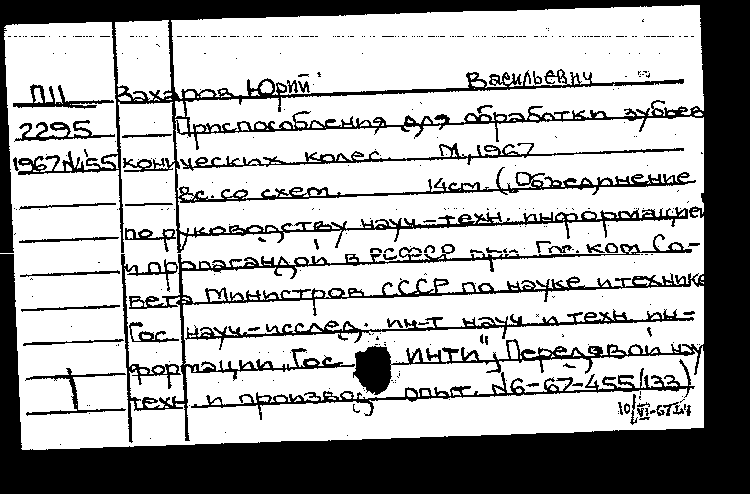 П11 Захаров, Юрий Васильевич
2295 Приспособления для обработки зубьев
1967 N455 конических колес. М., 1967
8с. со схем. 14см. („Объединение
по руководству науч.-техн. информацией
и пропагандой в РСФСР при Гос. ком. Со-
вета Министров СССР по науке и технике
Гос. науч.-исслед. ин-т науч. и техн. ин-
формации „Гос ИНТИ", Передовой науч
техн. и производ. опыт. N6-67-455/133)